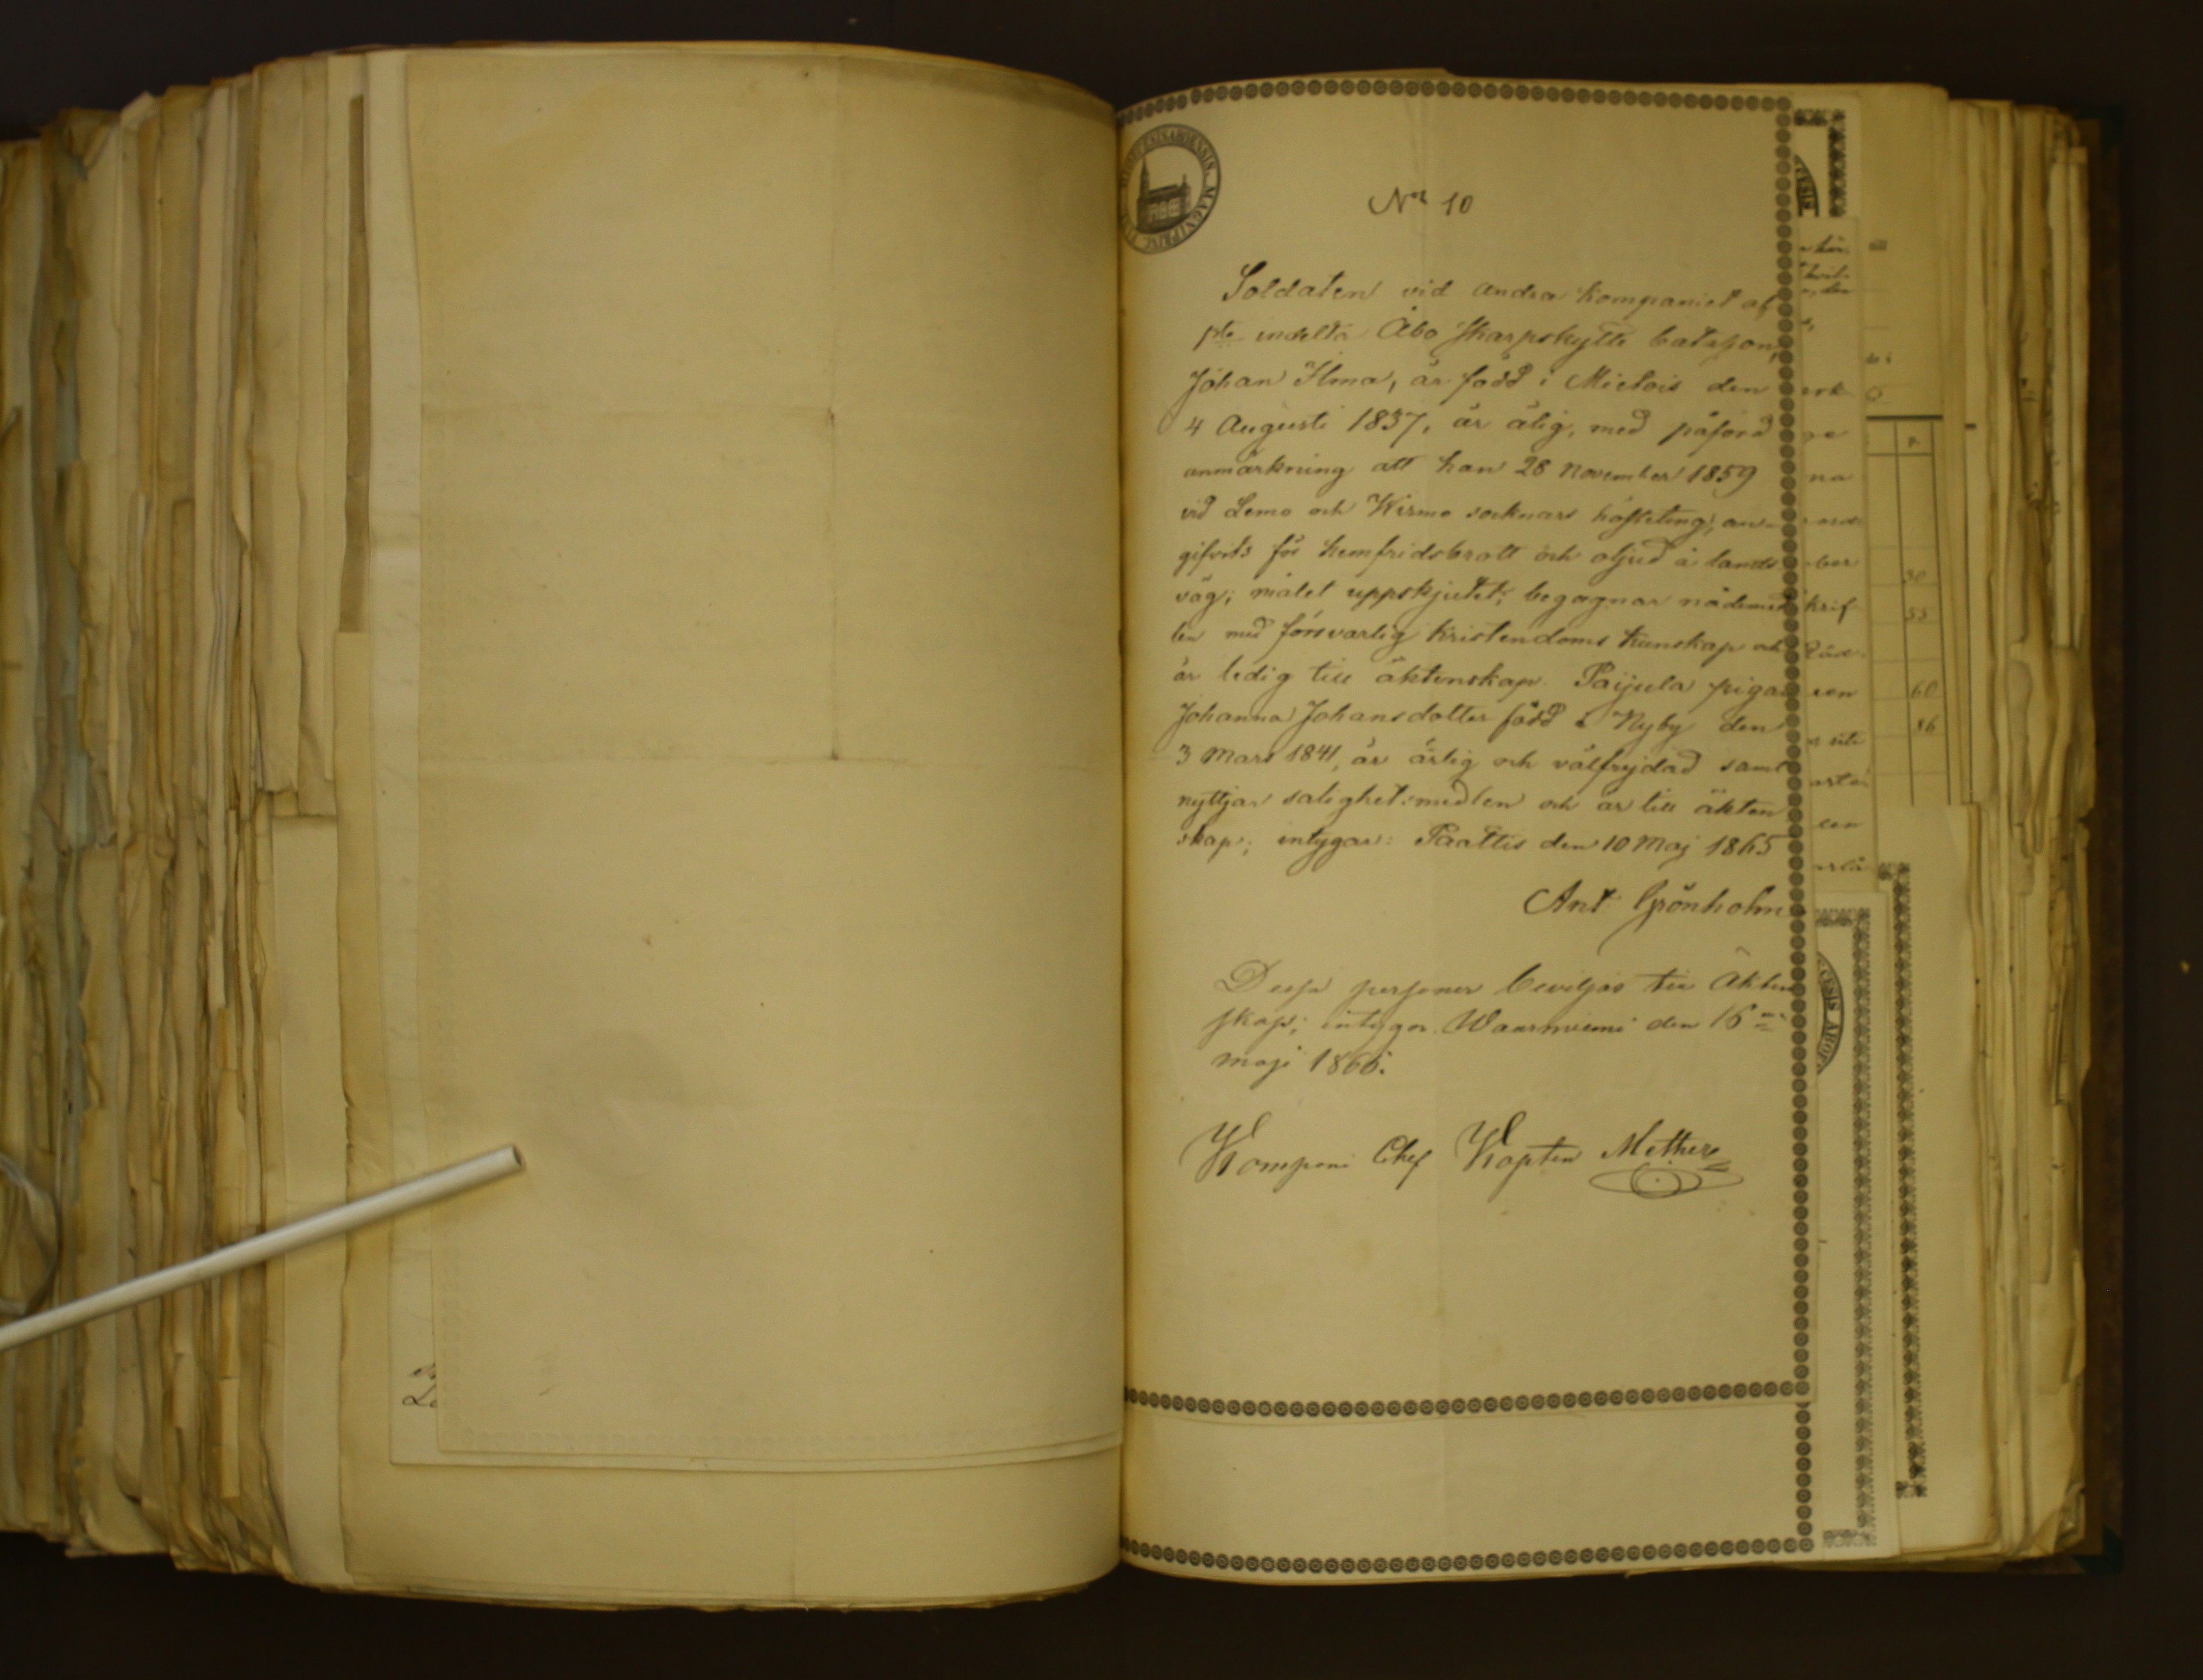 Nr 10
Soldaten vid andra kompaniet af
1sta indelta Åbo skarpskytte bataljon,
Johan Ilma, är född i Mietois den
4 Augusti 1837, är ärlig, med påförd
anmärkning att han 28 November 1859
vid Lemo och Wirmo socknars häfteting, an-
gifvits för hemfridsbrott och oljud å lands
väg; målet uppskjutet; begagnar nådemed
len med försvarlig kristendoms kunskap och
är ledig till äktenskap. Paijula pigan
Johanna Johansdotter född i Nyby den
3 Mars 1841, är ärlig och välfrejdad samt
nyttjar salighetsmedlen och är till äkten
skap; intygar: Paattis den 10 Maj 1865
Ant. Grönholm
Dessa personer beviljas till Äkten
skap; intygar Waarniemi den 16
maji 1865.
Kompani Chef Kapten Mether